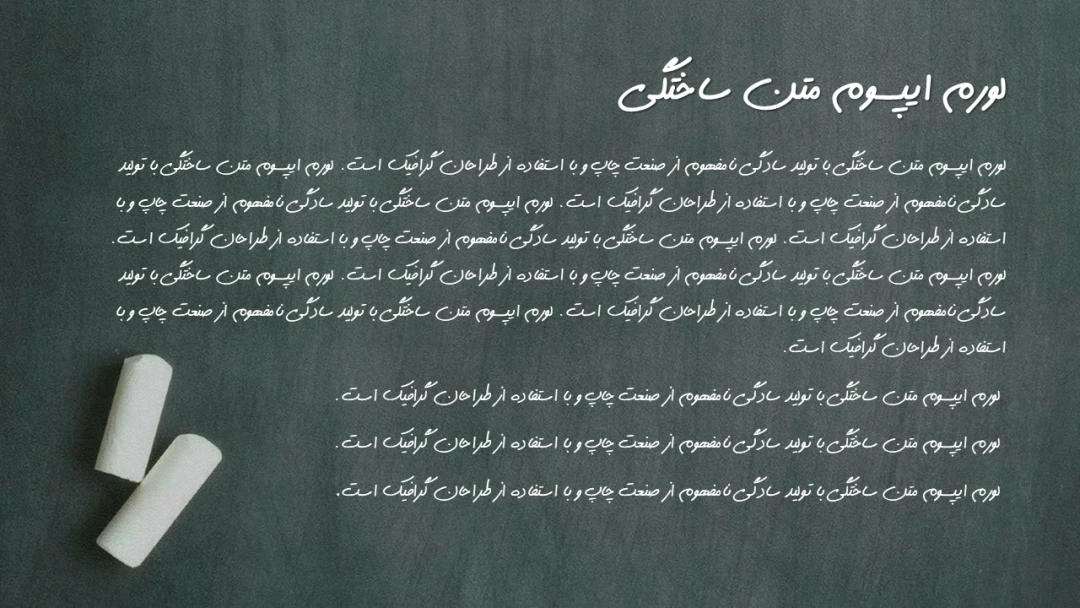 لورم ایپسوم متن ساختگی
لورم ایپسوم متن ساختگی با تولید سادگی نامفهوم از صنعت چاپ و با استفاده از طراحان گرافیک است. لورم ایپسوم متن ساختگی با تولید
سادگی نامفهوم از صنعت چاپ و با استفاده از طراحان گرافیک است. لورم ایپسوم متن ساختگی با تولید سادگی نامفهوم از صنعت چاپ و با
استفاده از طراحان گرافیک است. لورم ایپسوم متن ساختگی با تولید سادگی نامفهوم از صنعت چاپ و با استفاده از طراحان گرافیک است.
لورم ایپسوم متن ساختگی با تولید سادگی نامفهوم از صنعت چاپ و با استفاده از طراحان گرافیک است. لورم ایپسوم متن ساختگی با تولید
سادگی نامفهوم از صنعت چاپ و با استفاده از طراحان گرافیک است. لورم ایپسوم متن ساختگی با تولید سادگی نامفهوم از صنعت چاپ و با
استفاده از طراحان گرافیک است.
لورم ایپسوم متن ساختگی با تولید سادگی نامفهوم از صنعت چاپ و با استفاده از طراحان گرافیک است.
لورم ایپسوم متن ساختگی با تولید سادگی نامفهوم از صنعت چاپ و با استفاده از طراحان گرافیک است.
لورم ایپسوم متن ساختگی با تولید سادگی نامفهوم از صنعت چاپ و با استفاده از طراحان گرافیک است.